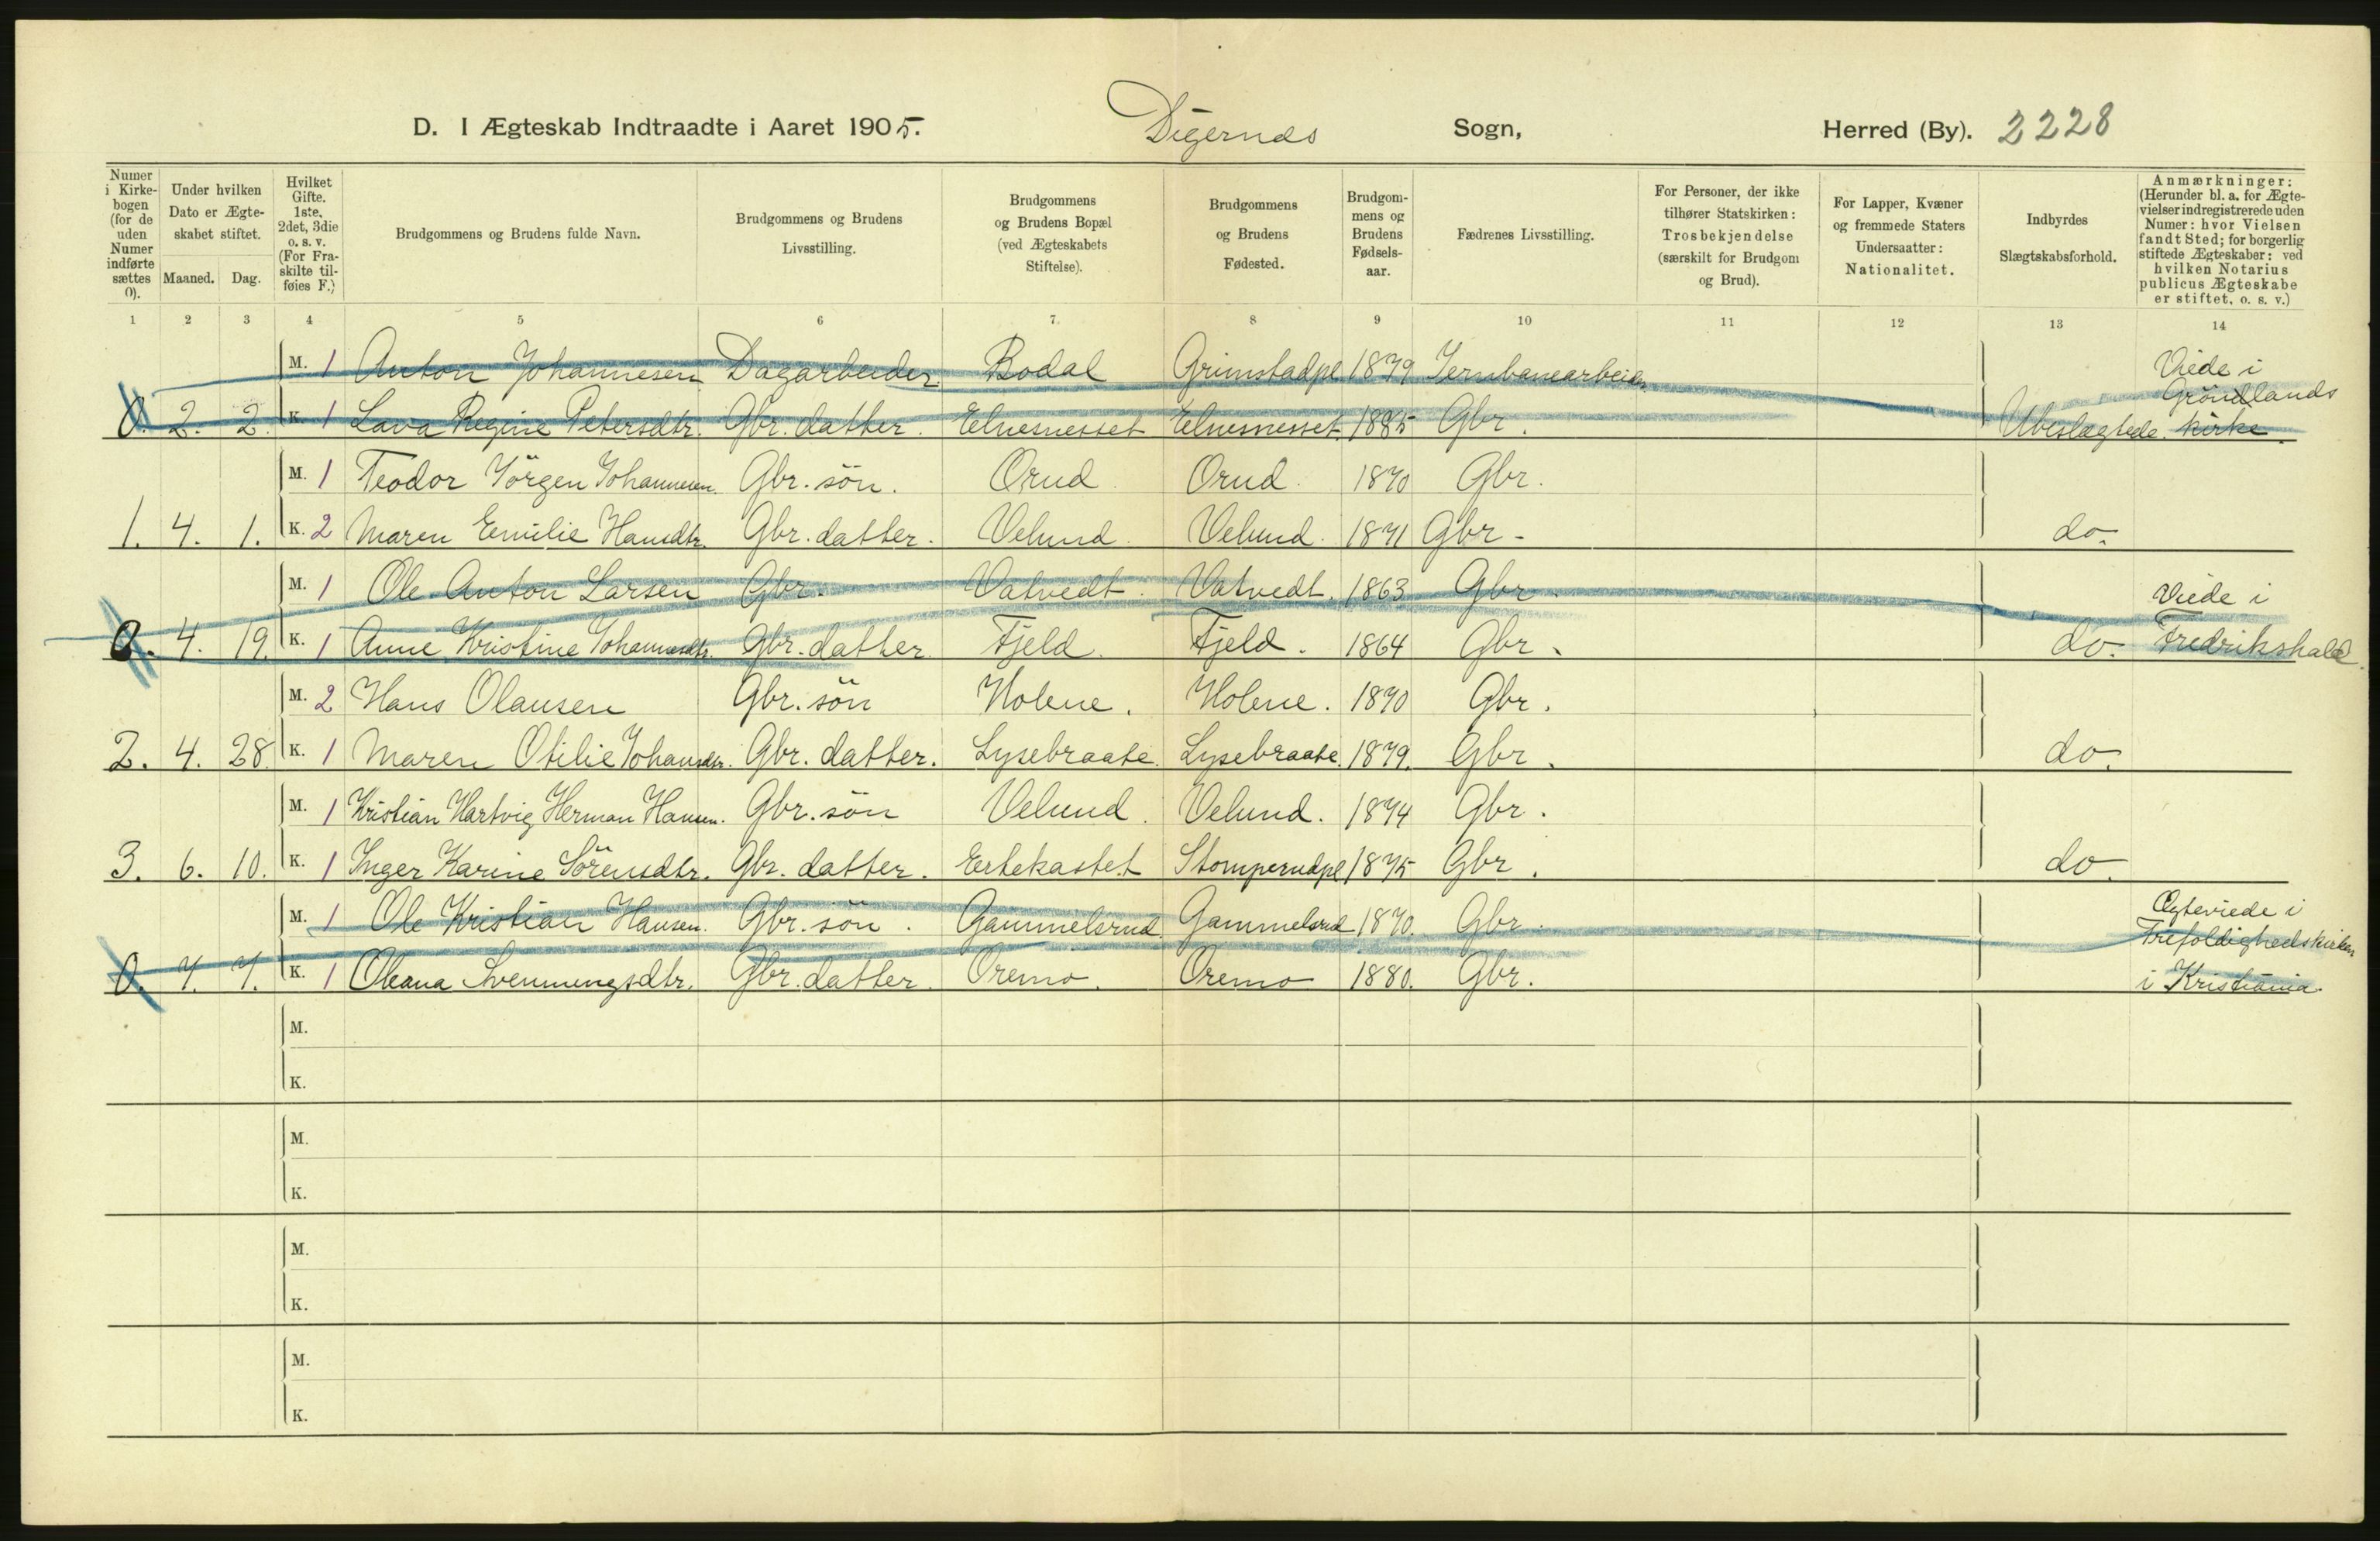 D. I Ægteskab Indtraadte i Aaret 1905. Digernes Sogn, Herred (By). 2228
Numer i Kirkebogen (for de uden Numer indførte sættes 0).
Under hvilken Dato er Ægteskabet stiftet.
Maaned. Dag.
Hvilket Gifte. 1ste, 2det, 3die o. s. v. (For Fraskilte tilføies F.)
Brudgommens og Brudens fulde Navn.
Brudgommens og Brudens Livsstilling.
Brudgommens og Brudens Bopæl (ved Ægteskabets Stiftelse).
Brudgommens og Brudens Fødested.
Brudgommens og Brudens Fødselsaar.
Fædrenes Livsstilling.
For Personer, der ikke tilhører Statskirken: Trosbekjendelse (særskilt for Brudgom og Brud).
For Lapper, Kvæner og fremmede Staters Undersaatter: Nationalitet.
Indbyrdes Slægtskabsforhold.
Anmærkninger: (Herunder bl. a. for Ægtevielser indregistrerede uden Numer: hvor Vielsen fandt Sted; for borgerlig stiftede Ægteskaber: ved hvilken Notarius publicus Ægteskabe er stiftet, o. s. v.)
1 2 3 4 5 6 7 8 9 10 11 12 13 14
M. 1 Anton Johannesen Dagarbeider Bodal Grimstadpl 1879 Jernbanearbeider Viede i
Grönlands
0. 2. 2. K. 1 Lava Regine Petersdtr. Gbr. datter. Elnesnesset Elnesnesset. 1885 Gbr. Ubeslægtede. kirke.
M. 1 Teodor Jörgen Johannesen Gbr. sön. Orud Orud. 1870 Gbr.
1. 4. 1. K. 2 Maren Emilie Hansdtr. Gbr. datter. Velund. Velund. 1871 Gbr. do.
M. 1 Ole Anton Larsen Gbr. Vatvedt. Vatvedt. 1863 Gbr. Viede i
0. 4. 19. K. 1 Anne Kristine Johannesdtr. Gbr. datter Fjeld. Fjeld. 1864 Gbr. do. Fredrikshald.
M. 2 Hans Olausen Gbr. sön Holene. Holene. 1870 Gbr.
2. 4. 28. K. 1 Maren Otilie Johansdtr. Gbr. datter. Lysebraate. Lysebraate. 1879. Gbr. do.
M. 1 Kristian Hartvig Herman Hansen. Gbr. sön Velund. Velund. 1874 Gbr.
3. 6. 10. K. 1 Inger Karine Sörensdtr. Gbr. datter. Ertekastet Stomperudpl 1875 Gbr. do.
M. 1 Ole Kristian Hansen. Gbr. sön. Gammelsrud. Gammelsrud 1870. Gbr. Ægteviede i
Trefoldighedskirken
0. 7. 7. K. 1 Oleana Svenningsdtr. Gbr. datter. Oremo. Oremo 1880. Gbr. i Kristiania.
M.
K.
M.
K.
M.
K.
M.
K.